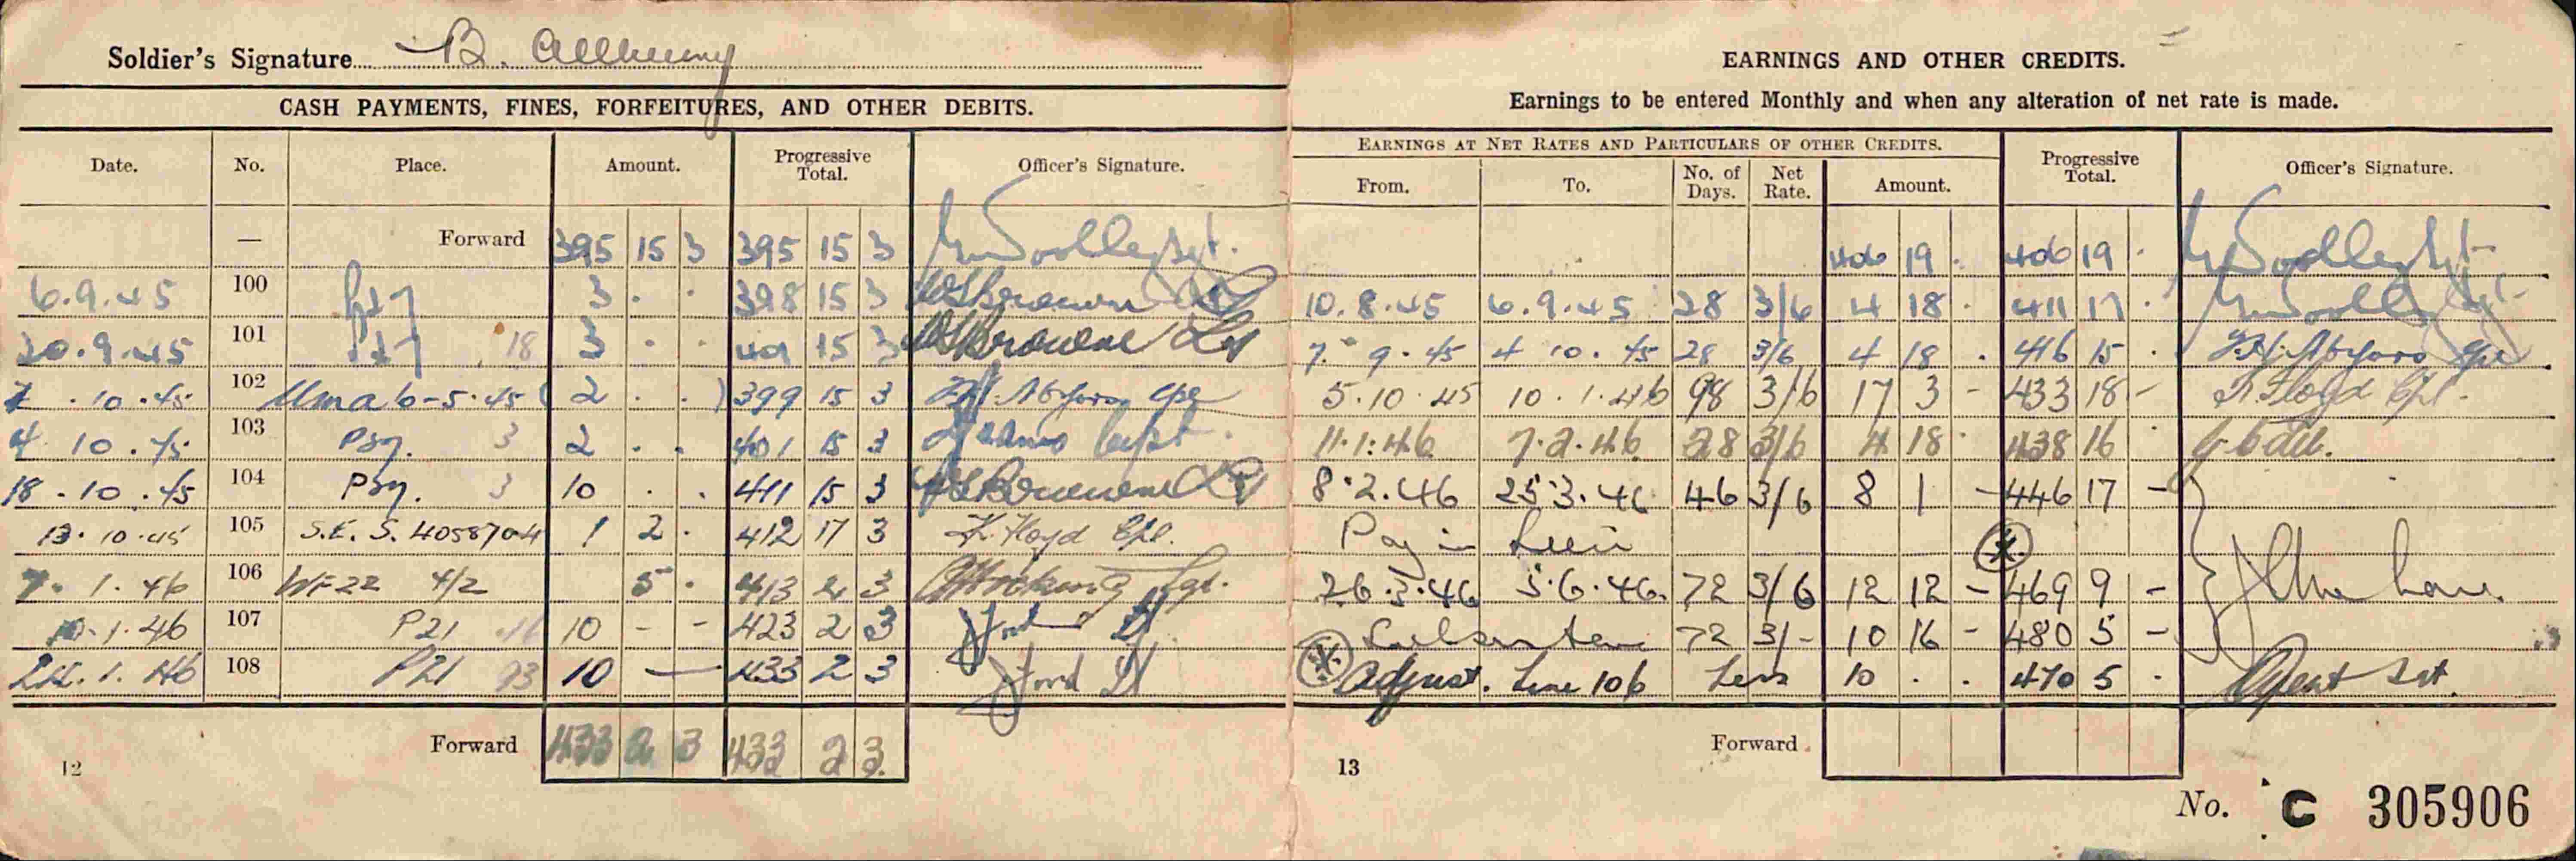 Soldier's Signature B. Allkenny
CASH PAYMENTS, FINES, FORFEITURES, AND OTHER DEBITS.
Date. No. Place. Amount. Progressive Total. Officer's Signature.
— Forward 395 15 3 395 15 3
6.9.45 100 3 . . 398 15 3
20.9.45 101 18 3 . . 401 15 3
. 10 . 45 102 6-5.45 ( 2 . . ) 399 15 3
4 10 . 45 103 Psy. 3 2 . . 401 15 3
18 . 10 . 45 104 Psy. 3 10 . . 411 15 3
13. 10 .45 105 S.E.S. 4058704 1 2 . 412 17 3 K. Floyd Cpl.
7. 1. 46 106 WF22 4/2 5 . 413 2 3 Sgt.
10.1.46 107 P21 16 10 - - 423 2 3 Ford Lt
24.1.46 108 P21 93 10 — 433 2 3 Ford Lt
Forward 433 2 3 433 2 3
12
EARNINGS AND OTHER CREDITS.
Earnings to be entered Monthly and when any alteration of net rate is made.
EARNINGS AT NET RATES AND PARTICULARS OF OTHER CREDITS.
From. To. No. of Days. Net Rate. Amount. Progressive Total. Officer's Signature.
406 19 . 406 19 .
10.8.45 6.9.45 28 3/6 4 18 . 411 17 .
7. 9. 45 4 10. 45 28 3/6 4 18 . 416 15 .
5.10 45 10.1.46 98 3/6 17 3 - 433 18 - K. Floyd Cpl.
11.1.46 7.2.46 28 3/6 4 18 . 438 16 .
8.2.46 25.3.46 46 3/6 8 1 - 446 17 -
Pay in Lieu
26.3.46 5.6.46. 72 3/6 12 12 - 469 9 -
72 3/- 10 16 - 480 5 -
Adjust. Line 106 Less 10 . . 470 5 .
Forward
13
No. C 305906